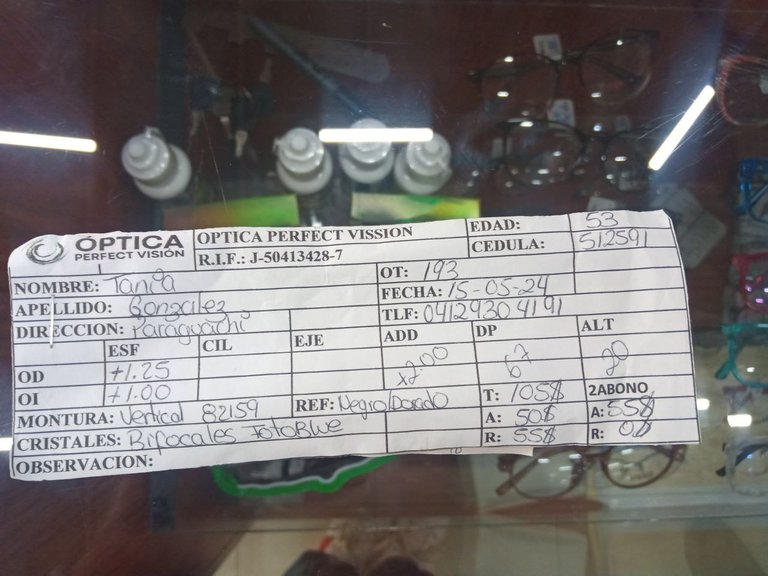 ÓPTICA
PERFECT VISIÓN
OPTICA PERFECT VISSION
EDAD: 53
R.I.F.: J-50413428-7
CEDULA: 512591
NOMBRE: Tania
OT: 193
APELLIDO: Gonzalez
FECHA: 15-05-24
DIRECCION: Paraguachi
TLF: 04129304191
ESF CIL EJE ADD DP ALT
OD +1.25
OI +1.00
+2.00 67 20
MONTURA: Vertical 82159 REF: Negro/Dorado T: 105$ 2ABONO
CRISTALES: Bifocales FotoBlue A: 50$ A: 55$
R: 55$ R: 0$
OBSERVACION: